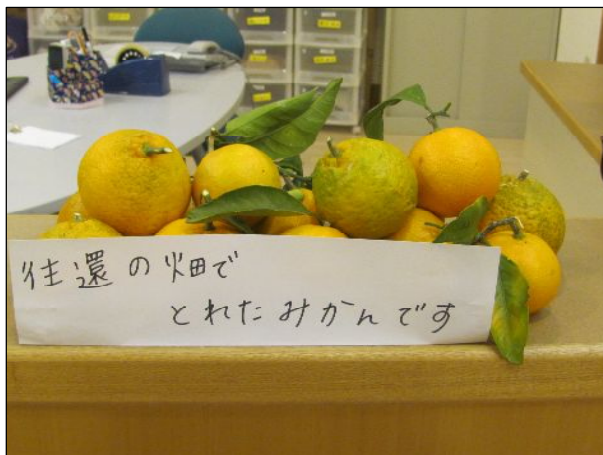 往還の畑で
とれたみかんです